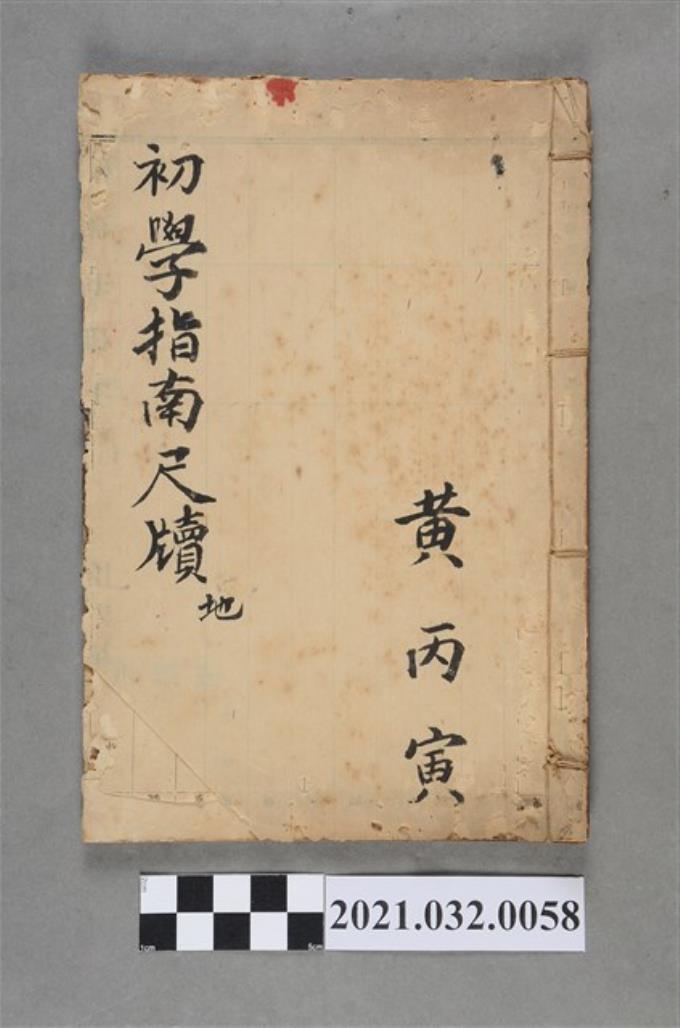 初學指南尺牘
地
黄丙寅
1cm
5cm
2021.032.0058